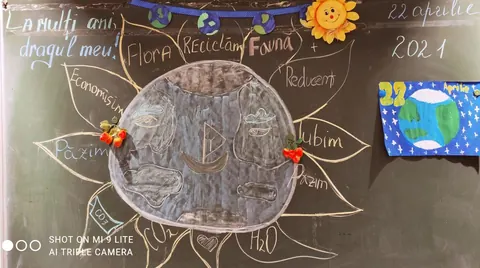 La mulți ani,
dragul meu!
22 aprilie
2021
Flora
Reciclăm
Fauna
+
Reducem
Economisim
Iubim
Păzim
Păzim
CO2
H2O
22
Aprilie
SHOT ON MI 9 LITE
AI TRIPLE CAMERA